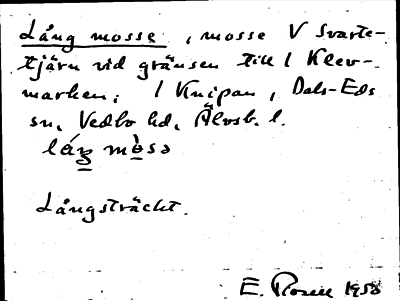 Lång mosse, mosse V Svarte-
tjärn vid gränsen till l Klev-
marken; l Knipan, Dals-Eds
sn, Vedbo hd, Älvsb. l.
Långsträckt.
E. Rosell 1958